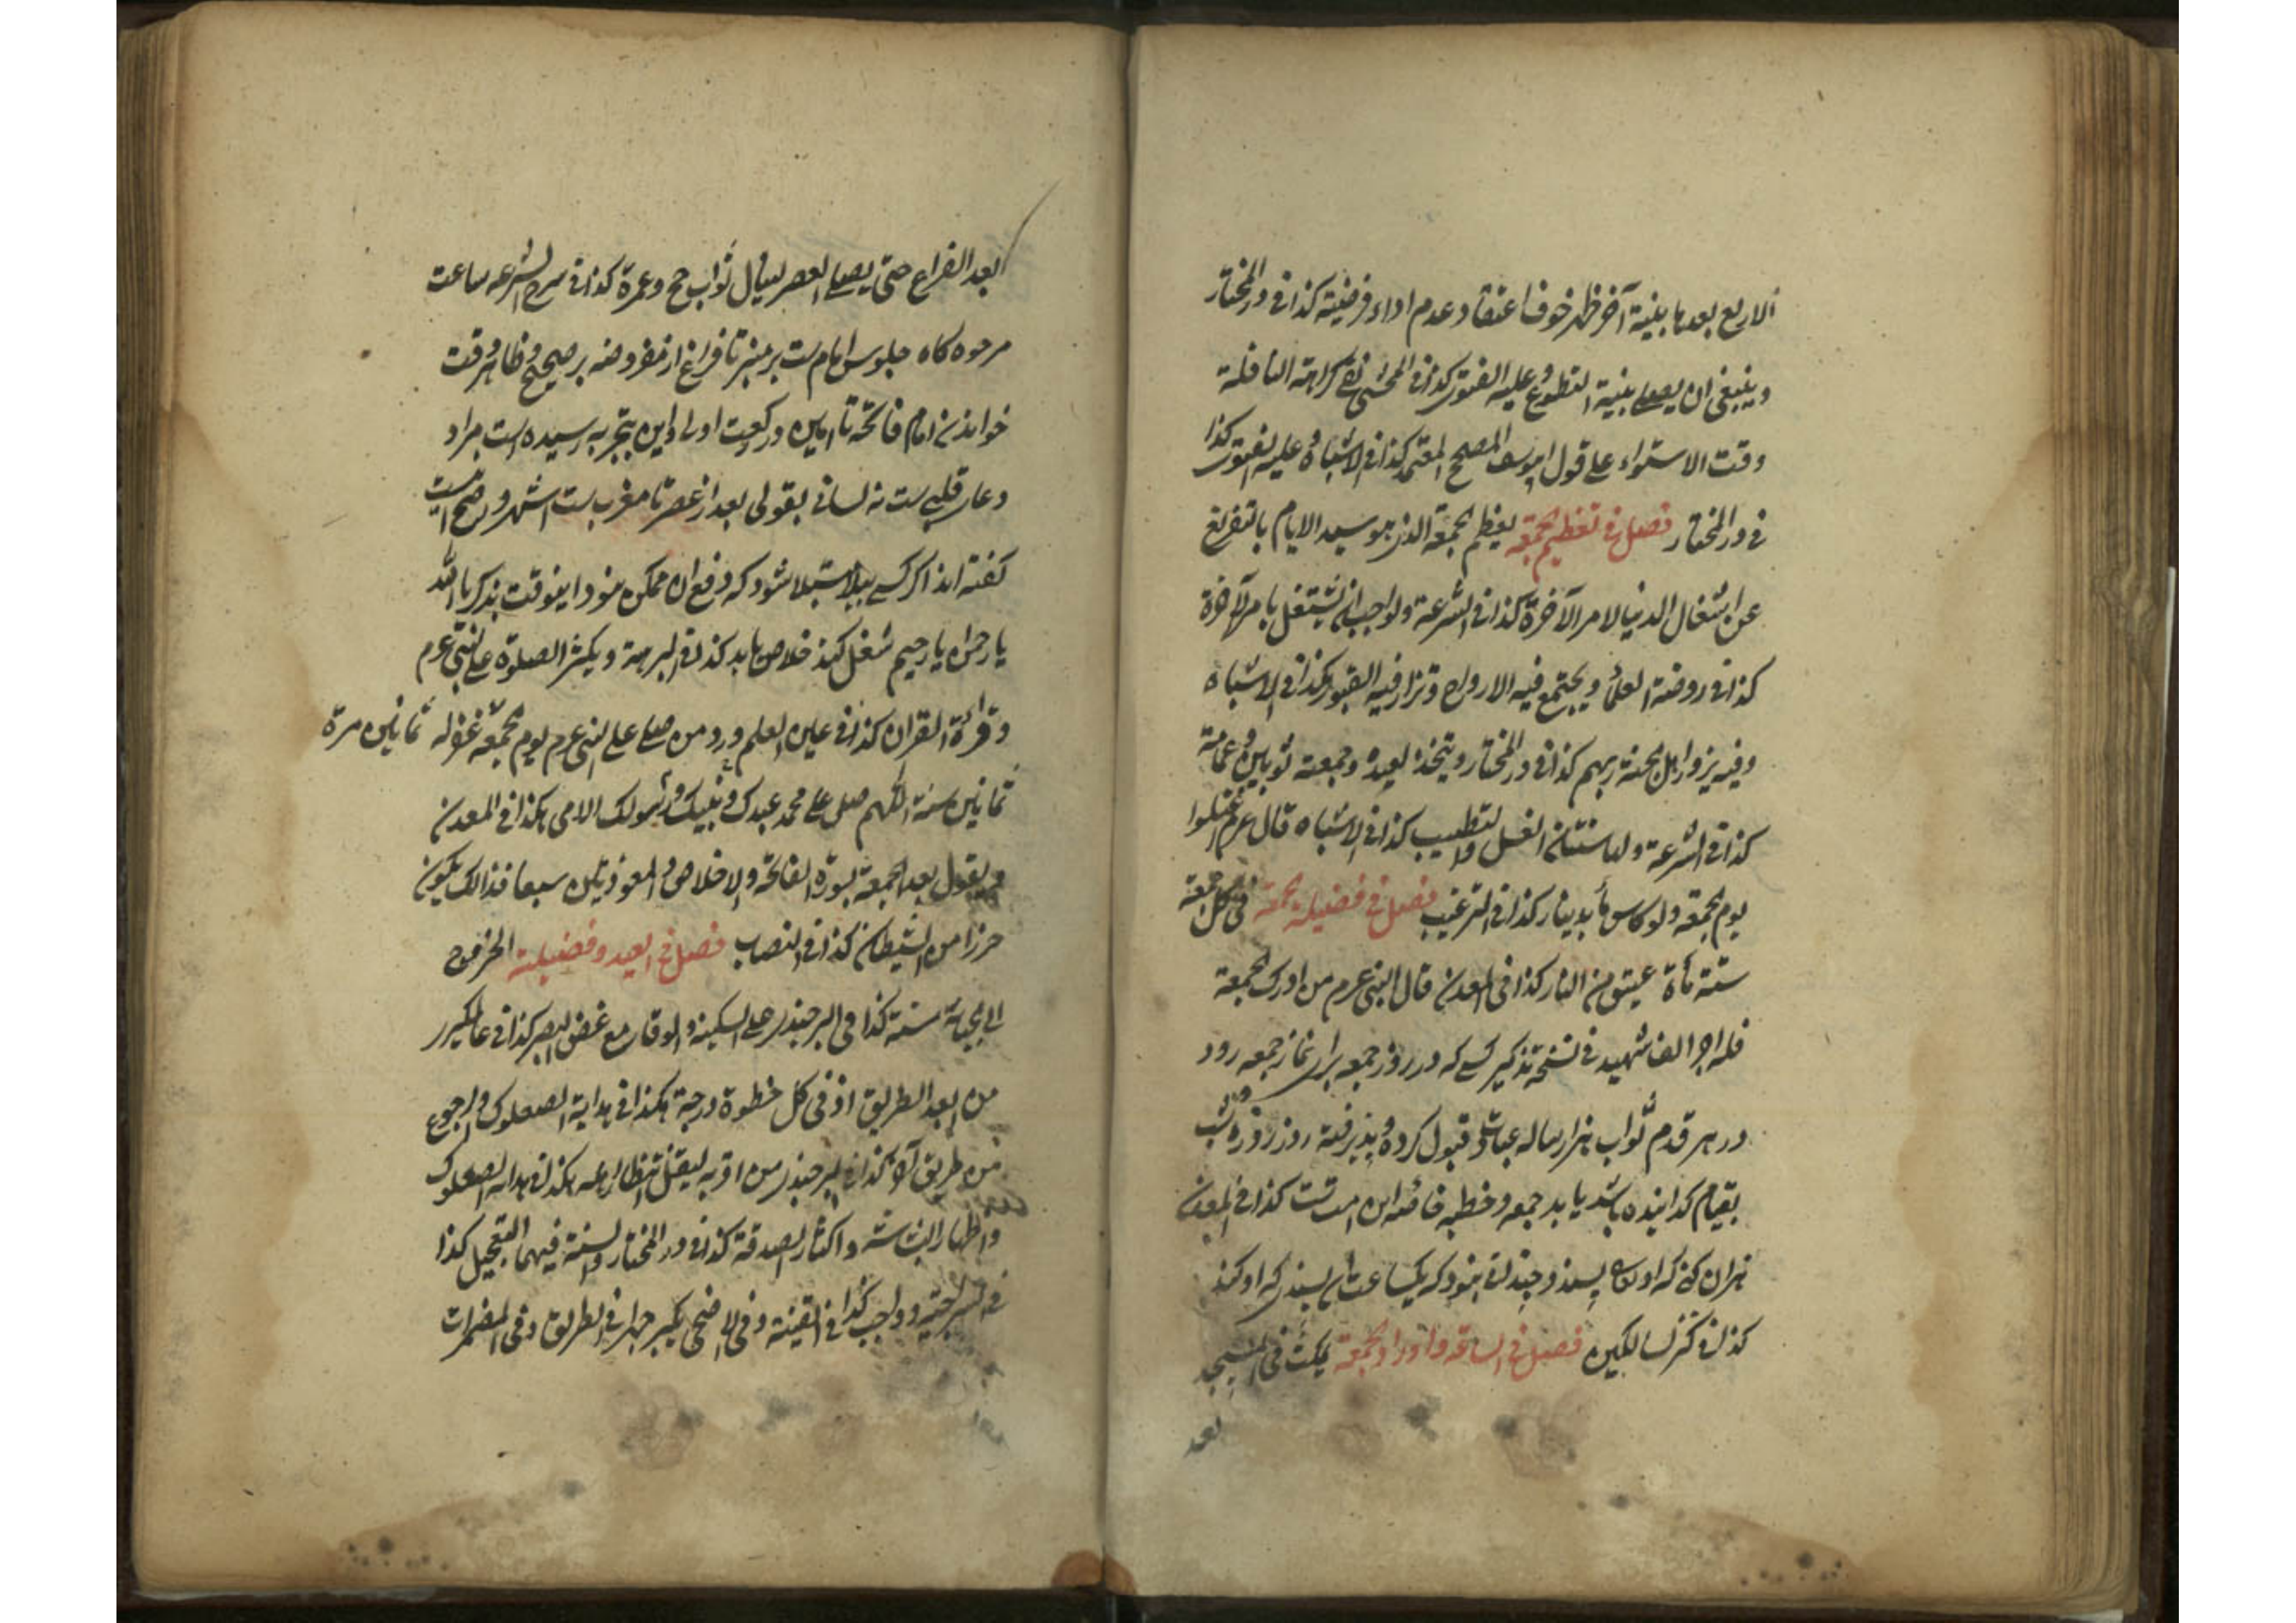 الاربع بعدها بنية آخر ظهر خوفا اعتقاد عدم اداء فرضيته كذا فی در المختار
وينبغى ان يصلى بنية التطوع وعليه الفتوى كذا فی المحشى نفى كراهة النافلة
وقت الاستواء على قول ابو يوسف المصحح المعتمد كذا فی الاشباه وعليه الفتوى كذا
فی در المختار فصل فی تعظيم الجمعة يعظم الجمعة الذى هو سيد الايام بالتفريغ
عن اشغال الدنيا لامر الآخرة كذا فی الشرعة والواجب ان يشتغل بامر الآخرة
كذا فی روضة العلماء ويجتمع فيه الارواح وتزار فيه القبور هكذا فی الاشباه
وفيه يزور اهل الجنة ربهم كذا فی در المختار ويتخذ لعيده وجمعته ثوبين وعمامة
كذا فی الشرعة ولها سنتان الغسل والتطييب كذا فی الاشباه قال عرم اغتسلوا
يوم الجمعة ولو كاس بدينار كذا فی الترغيب فصل فی فضيلة الجمعة فی كل جمعة
ستة مأة عتيق من النار كذا فی المعدن قال النبى عرم من ادرك الجمعة
فله اجر الف شهيد فی نسخة تذكير كسے كه در روز جمعه برای نماز جمعه رود
در هر قدم ثواب هزار ساله عبادت و قبول كرده و پذيرفته روز روزه و شب
بقيام گذرانيده باشد يابد جمعه و خطبه خاصه اين امت است كذا فی المعدن
كذا فی كنز السالكين فصل فی الساعة واوراد الجمعة يمكث فی المسجد
بعد
بعد الفراغ حتى يصلى العصر لينال ثواب حج وعمرة كذا فی شرح الشرعه ساعت
مرجوه گاه جلوس امام ست بر منبر تا فراغ از مفروضه بر صحيح و ظاهر وقت
خواندن امام فاتحه تا امين در ركعت اولى و اين بتجربه رسيده است مراد
دعای قلبی ست نه لسانی بقولی بعد از عصر تا مغرب ست اشهر و اصح است
گفته اند اگر كسے ببلا مبتلا شود كه دفع ان ممكن نبود اينوقت بذكر يا الله
يا رحمن يا رحيم شغل كند خلاص يابد كذا فی البرهنة ويكثر الصلوة على النبى عرم
وقرائة القران كذا فی عين العلم ورد من صلى على النبى عرم يوم الجمعة غفر له ثمانين مرة
ثمانين سنة اللهم صل على محمد عبدك ونبيك ورسولك الامى هكذا فی المعدن
ويقول بعد الجمعة بسورة الفاتحة والاخلاص والمعوذتين سبعا فذالك يكون
حرزا من الشيطان كذا فی النصاب فصل فی العيد وفضيلته الخروج
الى الجبانة سنة كذا فی البرجندى على السكينة والوقار مع غض البصر كذا فی عالمگيرى
من ابعد الطريق اذ فی كل خطوة درجة هكذا فی هداية الصعلوك والرجوع
من طريق آخر كذا فی البرجندى من اقربه ليقل انتظار اهله هكذا فی هداية الصعلوك
واظهار البشاشة واكثار الصدقة كذا فی در المختار والسنة فيهما التعجيل كذا
فی السراجية وواجب كذا فی القنية وفی الاضحى يكبر جهرا فی الطريق وفی المضمرات